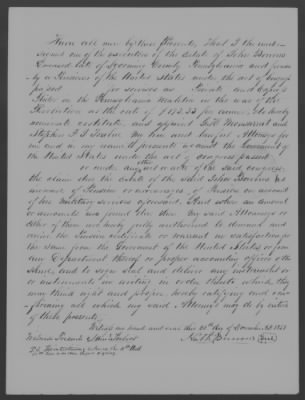 Know all men by these Presents, That I the under-
signed one of the executors of the estate of John Burrows
Deceased late of Lycoming County Pennsylvania and former-
ly a Pensioner of the United States under the act of Congress
passed for services as Private and
in the Pennsylvania militia in the war of the
Revolution at the rate of $ per annum, do hereby
nominate constitute and appoint
my true and lawful Attorneys for
me and in my name to prosecute against the Government of
the United States under the act of Congress passed
or under any other act or acts of the said Congress,
the claim the estate of the said John Burrows to
increase of Pension or arrearages of Pension on account
of his military services aforesaid. And when an amount
or amounts is found due then my said Attorneys or
either of them are hereby fully authorized to demand and
receive the certificate or warrant in satisfaction for
the same from the Government of the United States or from
any Department thereof or proper accounting officer of the
same, and to sign seal and deliver any instrument or
or instruments in writing in order thereto which they
may think right and proper hereby ratifying and con-
firming all which my said Attorneys may do by virtue
of these presents.
Witness my hand and seal this day of December AD 1851
Nath. Burrows Seal